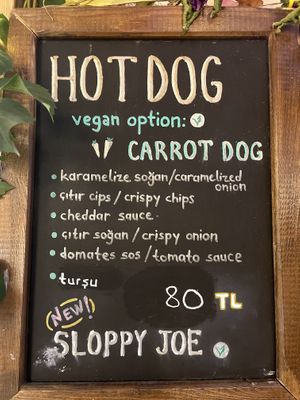 HOT DOG
vegan option:
CARROT DOG
• karamelize soğan/caramelized
onion
• çıtır cips/crispy chips
• cheddar sauce
• çıtır soğan/crispy onion
• domates sos/tomato sauce
• turşu
80 TL
NEW!
SLOPPY JOE